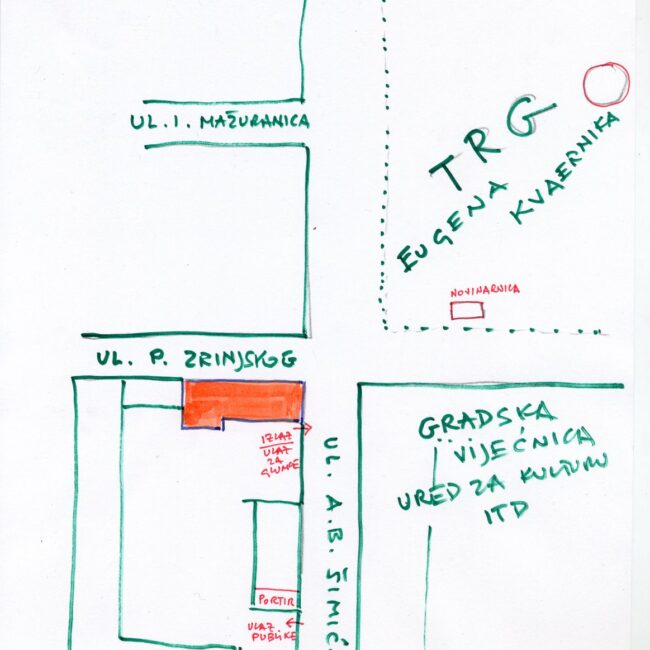 UL. I. MAŽURANICA
TRG
EUGENA
KVAERNIKA
NOVINARNICA
UL. P. ZRINJSKOG
GRADSKA
VIJEĆNICA
URED ZA KULTURU
ITD
IZLAZ
ULAZ
ZA
GLUMCE
UL. A.B. ŠIMIĆ
PORTIR
ULAZ
PUBLIKE